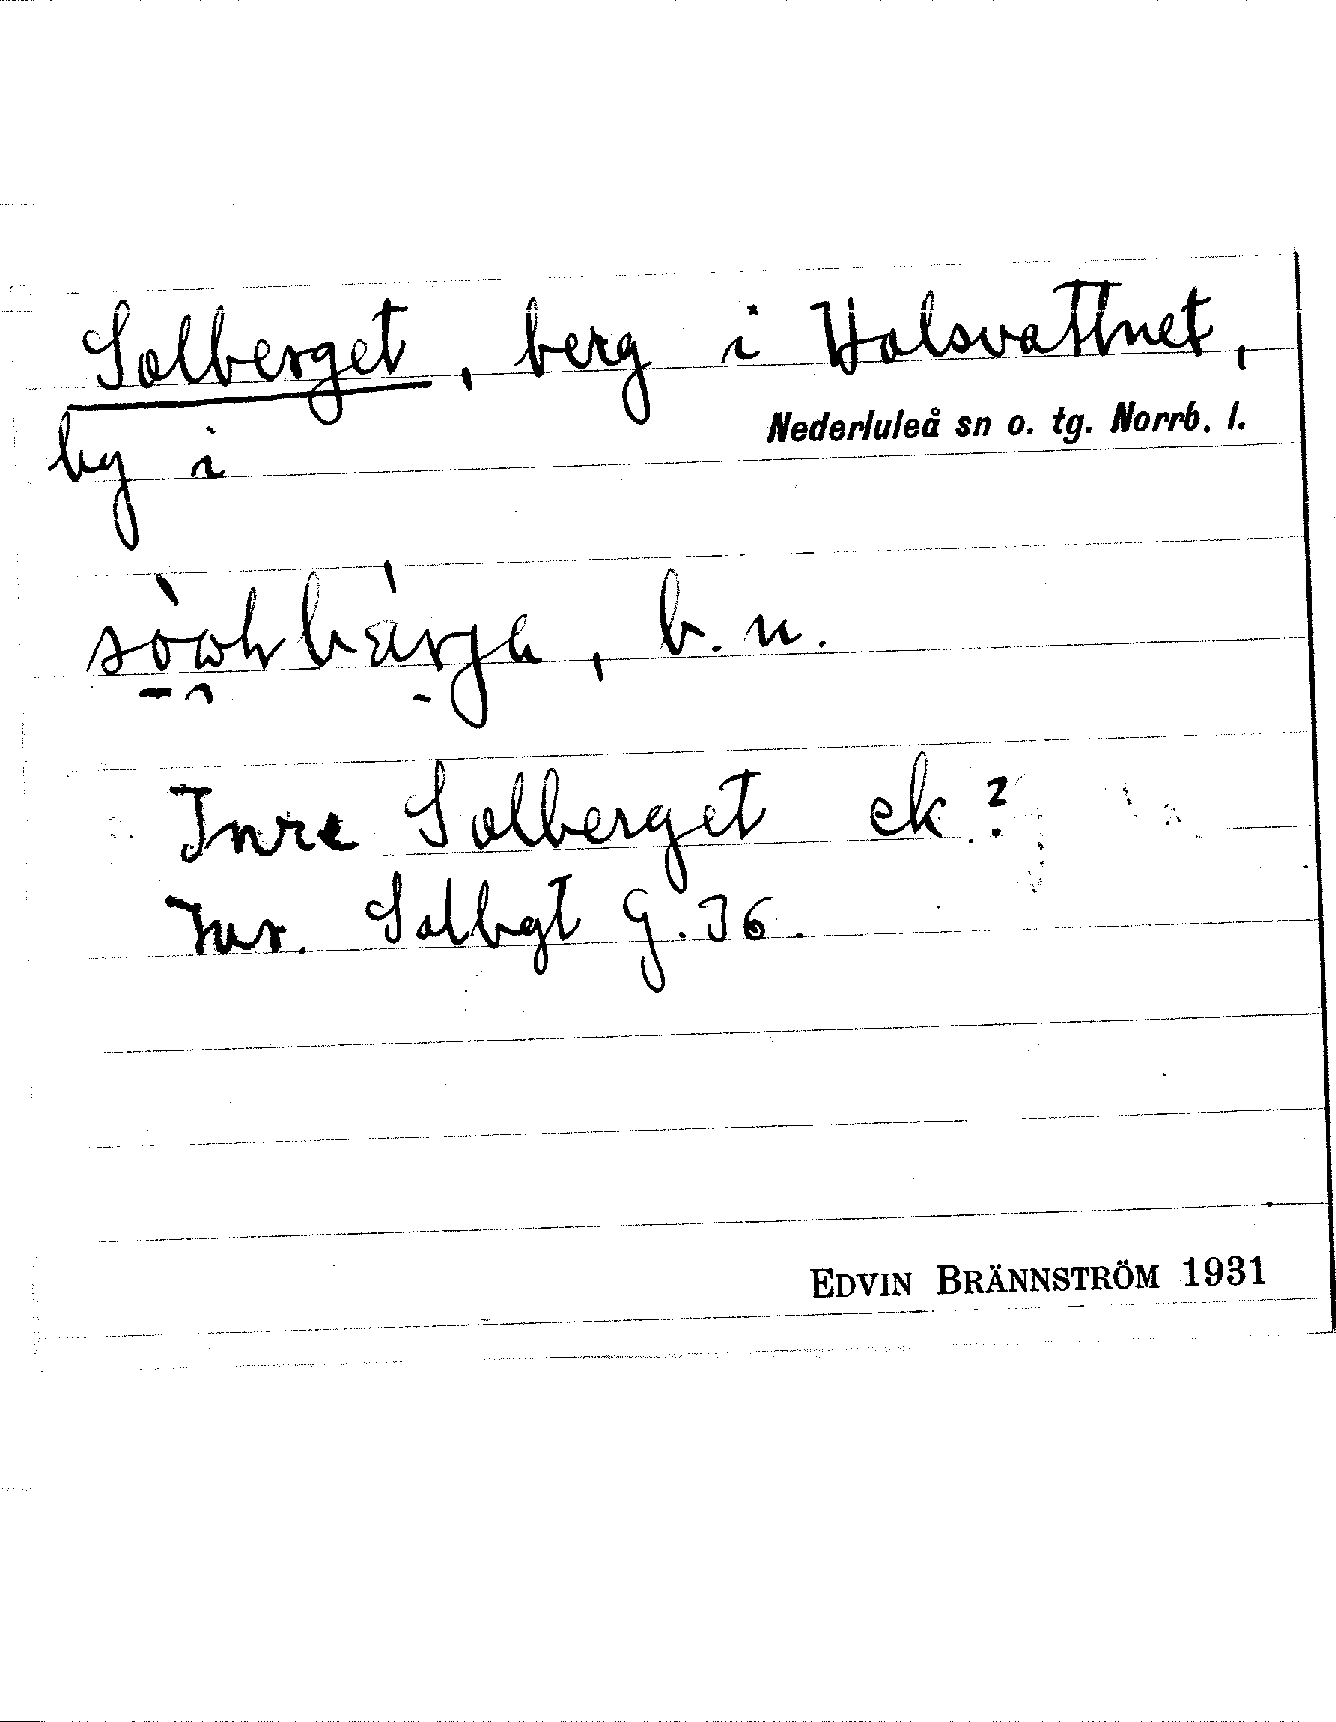 Solberget, berg i Holsvattnet,
by i Nederluleå sn o. tg. Norrb. l.
b. n.
Inre Solberget ek?
Inr. Solbgt G. 36.
EDVIN BRÄNNSTRÖM 1931